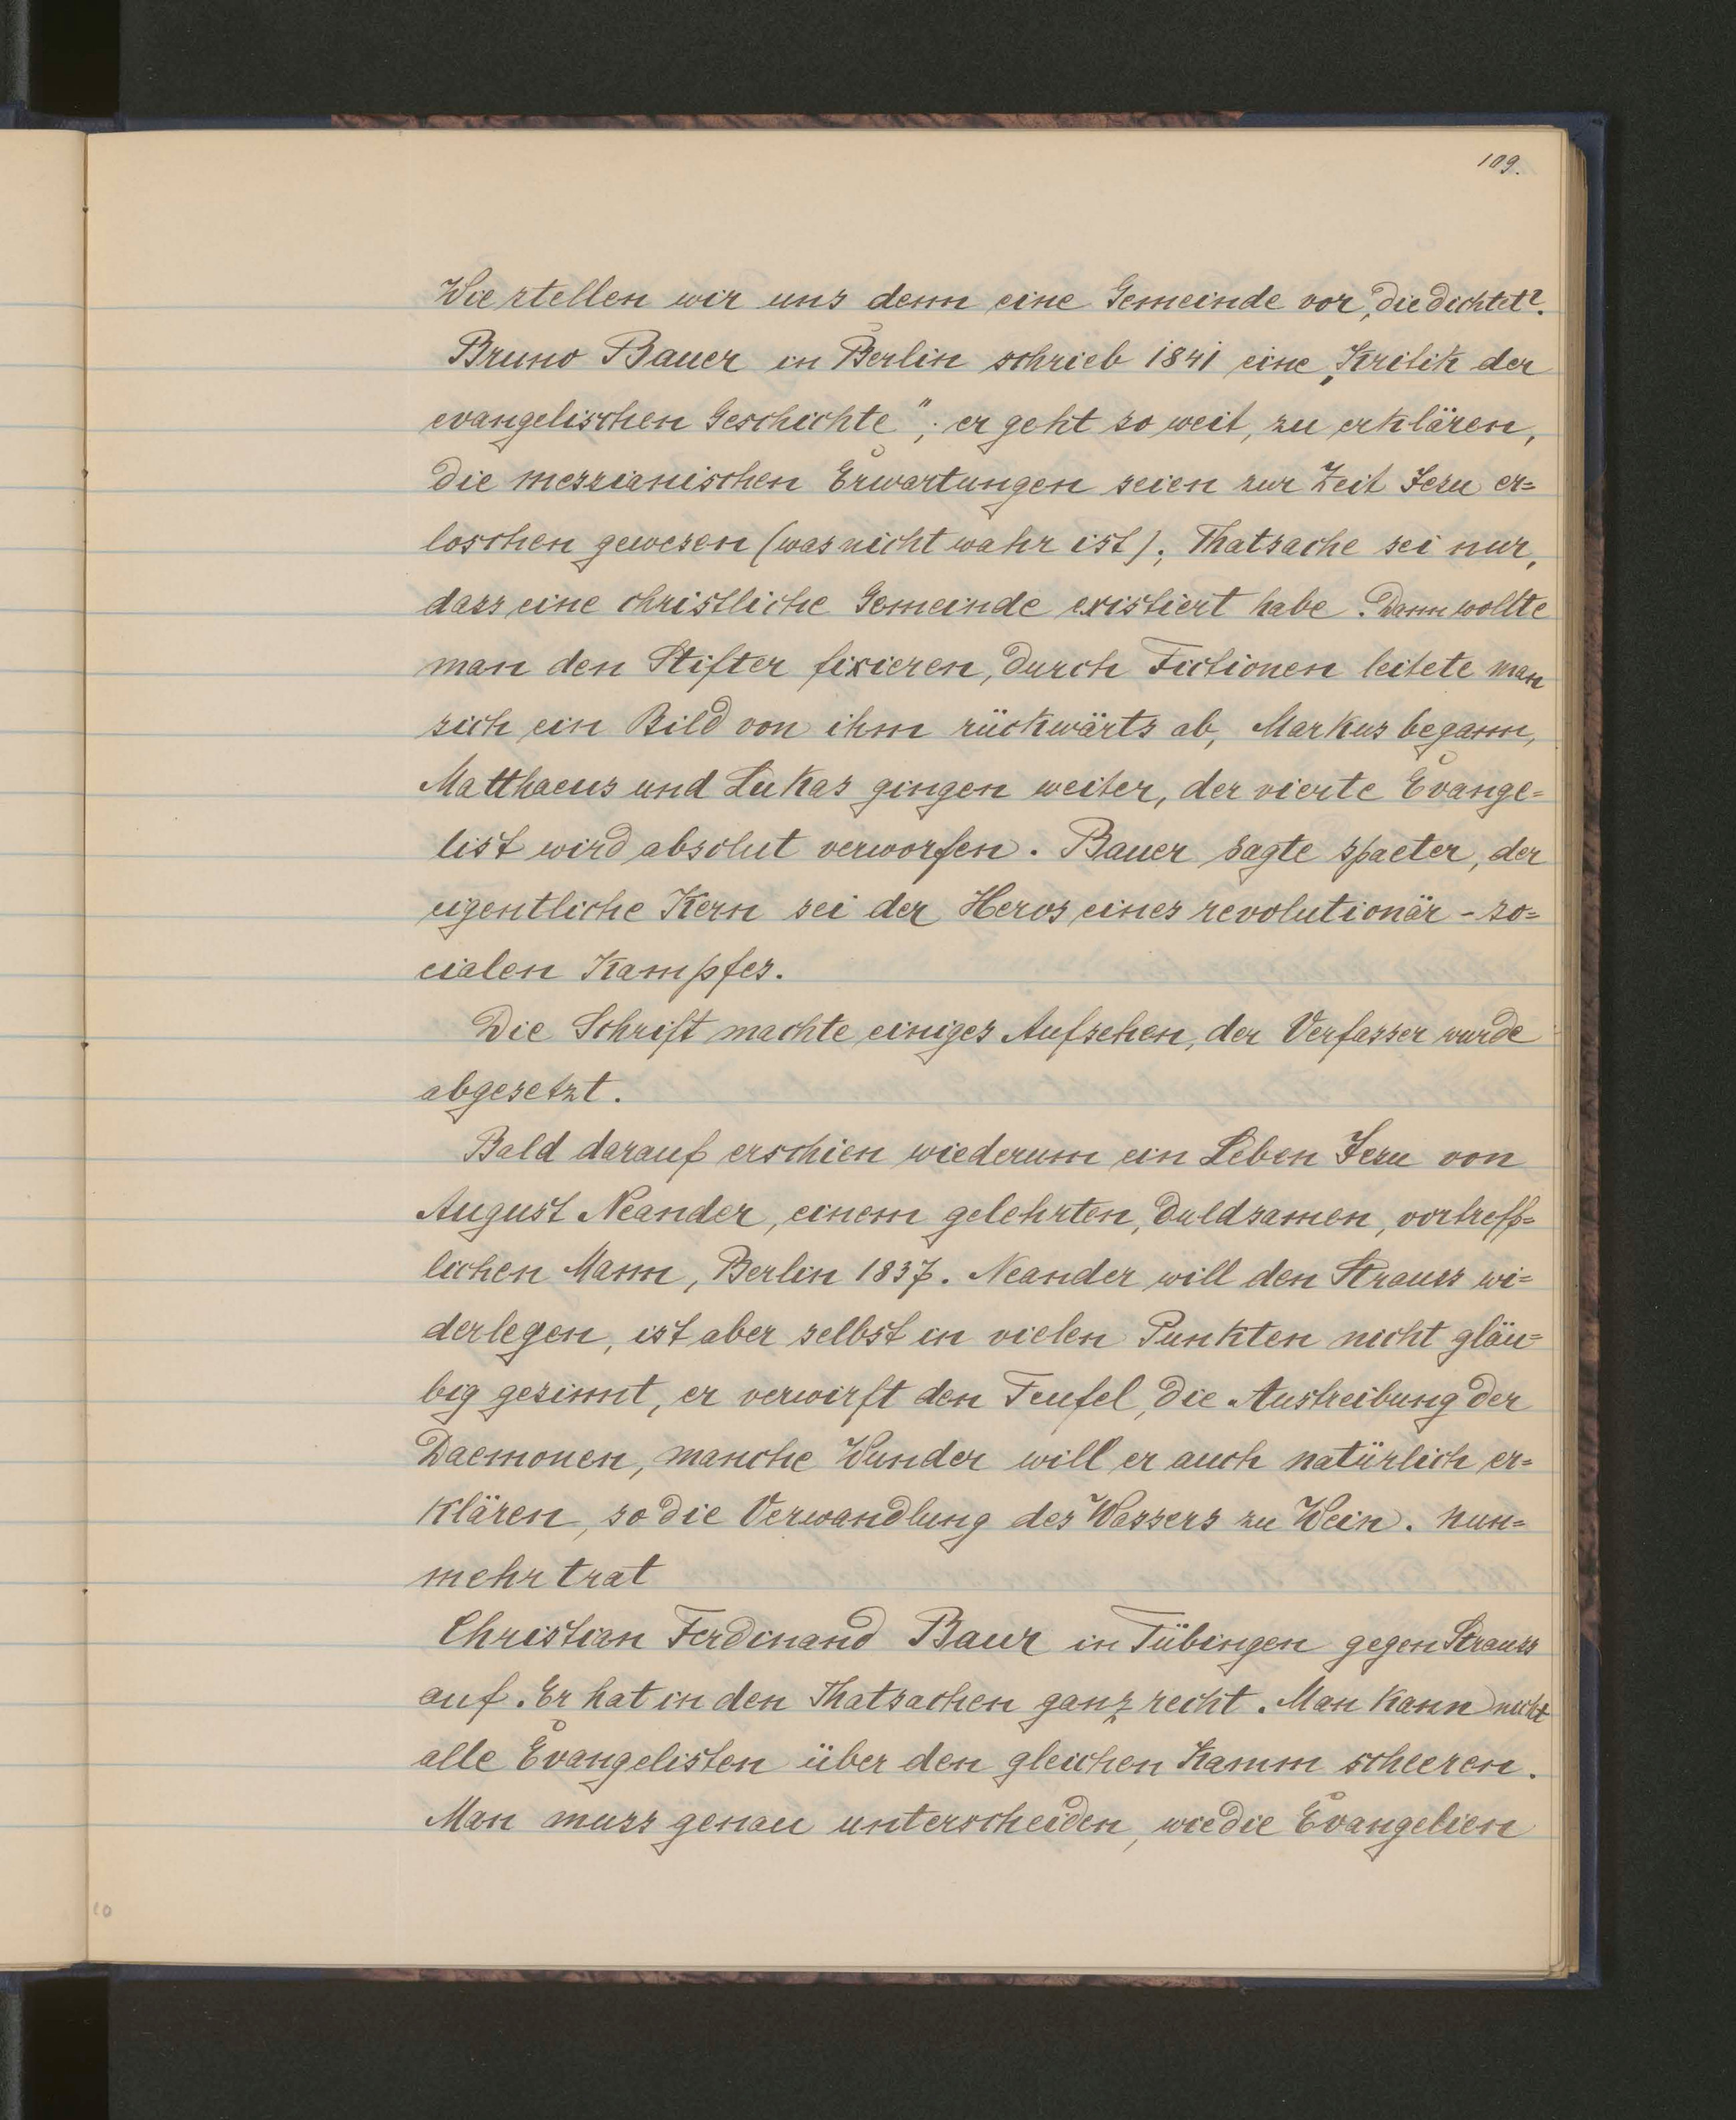 109.
Wie stellen wir uns denn eine Gemeinde vor, die dichtet?
Bruno Bauer in Berlin schrieb 1841 eine „Kritik der
evangelischen Geschichte"; er geht so weit, zu erklären,
die messianischen Erwartungen seien zur Zeit Jesu er=
loschen gewesen (was nicht wahr ist); Thatsache sei nur,
dass eine christliche Gemeinde existiert habe. Dann wollte
man den Stifter fixieren, durch Fictionen leitete man
sich ein Bild von ihm rückwärts ab, Markus begann,
Matthaeus und Lukas gingen weiter, der vierte Evange=
list wird absolut verworfen. Bauer sagte spaeter, der
eigentliche Kern sei der Heros eines revolutionär-so=
cialen Kampfes.
Die Schrift machte einiges Aufsehen, der Verfasser wurde
abgesetzt.
Bald darauf erschien wiederum ein Leben Jesu von
August Neander, einem gelehrten, duldsamen, vortreff=
lichen Mann, Berlin 1837. Neander will den Strauss wi=
derlegen, ist aber selbst in vielen Punkten nicht gläu=
big gesinnt, er verwirft den Teufel, die Austreibung der
Daemonen, manche Wunder will er auch natürlich er=
klären, so die Verwandlung des Wassers zu Wein. Nun=
mehr trat
Christian Ferdinand Baur in Tübingen gegen Strauss
auf. Er hat in den Thatsachen ganz recht. Man kann nicht
alle Evangelisten über den gleichen Kamm scheeren.
Man muss genau unterscheiden, wie die Evangelien